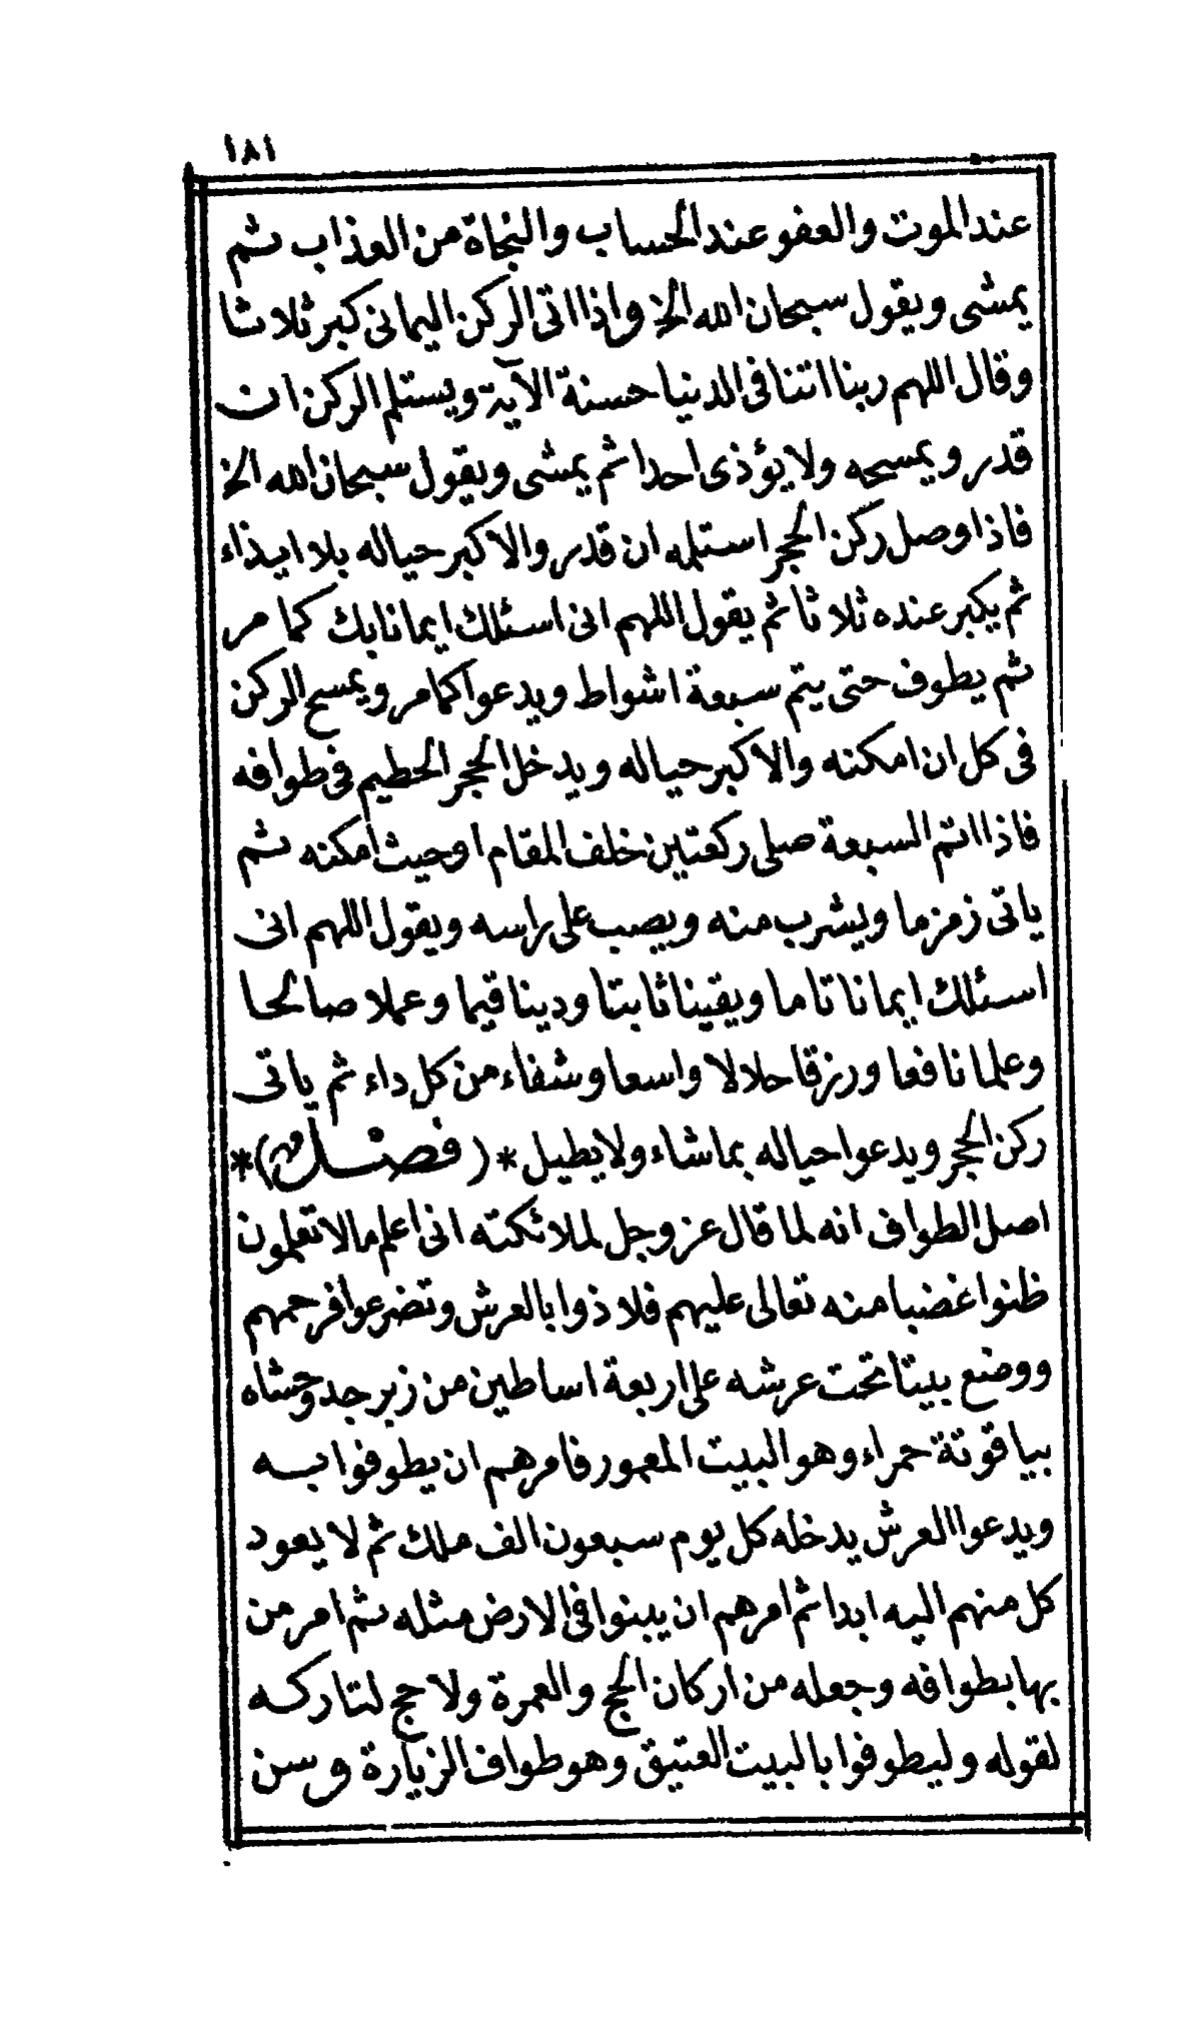 ١٨١
عند الموت والعفو عند الحساب والنجاة من العذاب ثم
يمشى ويقول سبحان الله الخ واذا اتى الركن اليمانى كبر ثلاثا
وقال اللهم ربنا اتنا فى الدنيا حسنة الآية ويستلم الركن ان
قدر ويمسحه ولا يؤذى احدا ثم يمشى ويقول سبحان الله الخ
فاذا وصل ركن الحجر استلمه ان قدر والا كبر حياله بلا ايذاء
ثم يكبر عنده ثلاثا ثم يقول اللهم انى اسئلك ايمانا بك كما مر
ثم يطوف حتى يتم سبعة اشواط ويدعوا كما مر ويمسح الركن
فى كل ان امكنه والا كبر حياله ويدخل الحجر الحطيم فى طوافه
فاذا اتم السبعة صلى ركعتين خلف المقام او حيث امكنه ثم
ياتى زمزما ويشرب منه ويصب على راسه ويقول اللهم انى
اسئلك ايمانا تاما ويقينا ثابتا ودينا قيما وعملا صالحا
وعلما نافعا ورزقا حلالا واسعا وشفاء من كل داء ثم ياتى
ركن الحجر ويدعوا حياله بما شاء ولا يطيل * (فصل) *
اصل الطواف انه لما قال عز وجل لملائكته انى اعلم ما لا تعلمون
ظنوا غضبا منه تعالى عليهم فلاذوا بالعرش وتضرعوا فرحمهم
ووضع بيتا تحت عرشه على اربعة اساطين من زبرجد وحشاه
بياقوتة حمراء وهو البيت المعمور فامرهم ان يطوفوا به
ويدعوا العرش يدخله كل يوم سبعون الف ملك ثم لا يعود
كل منهم اليه ابدا ثم امرهم ان يبنوا فى الارض مثله ثم امر من
بها بطوافه وجعله من اركان الحج والعمرة ولا حج لتاركه
لقوله وليطوفوا بالبيت العتيق وهو طواف الزيارة وسن